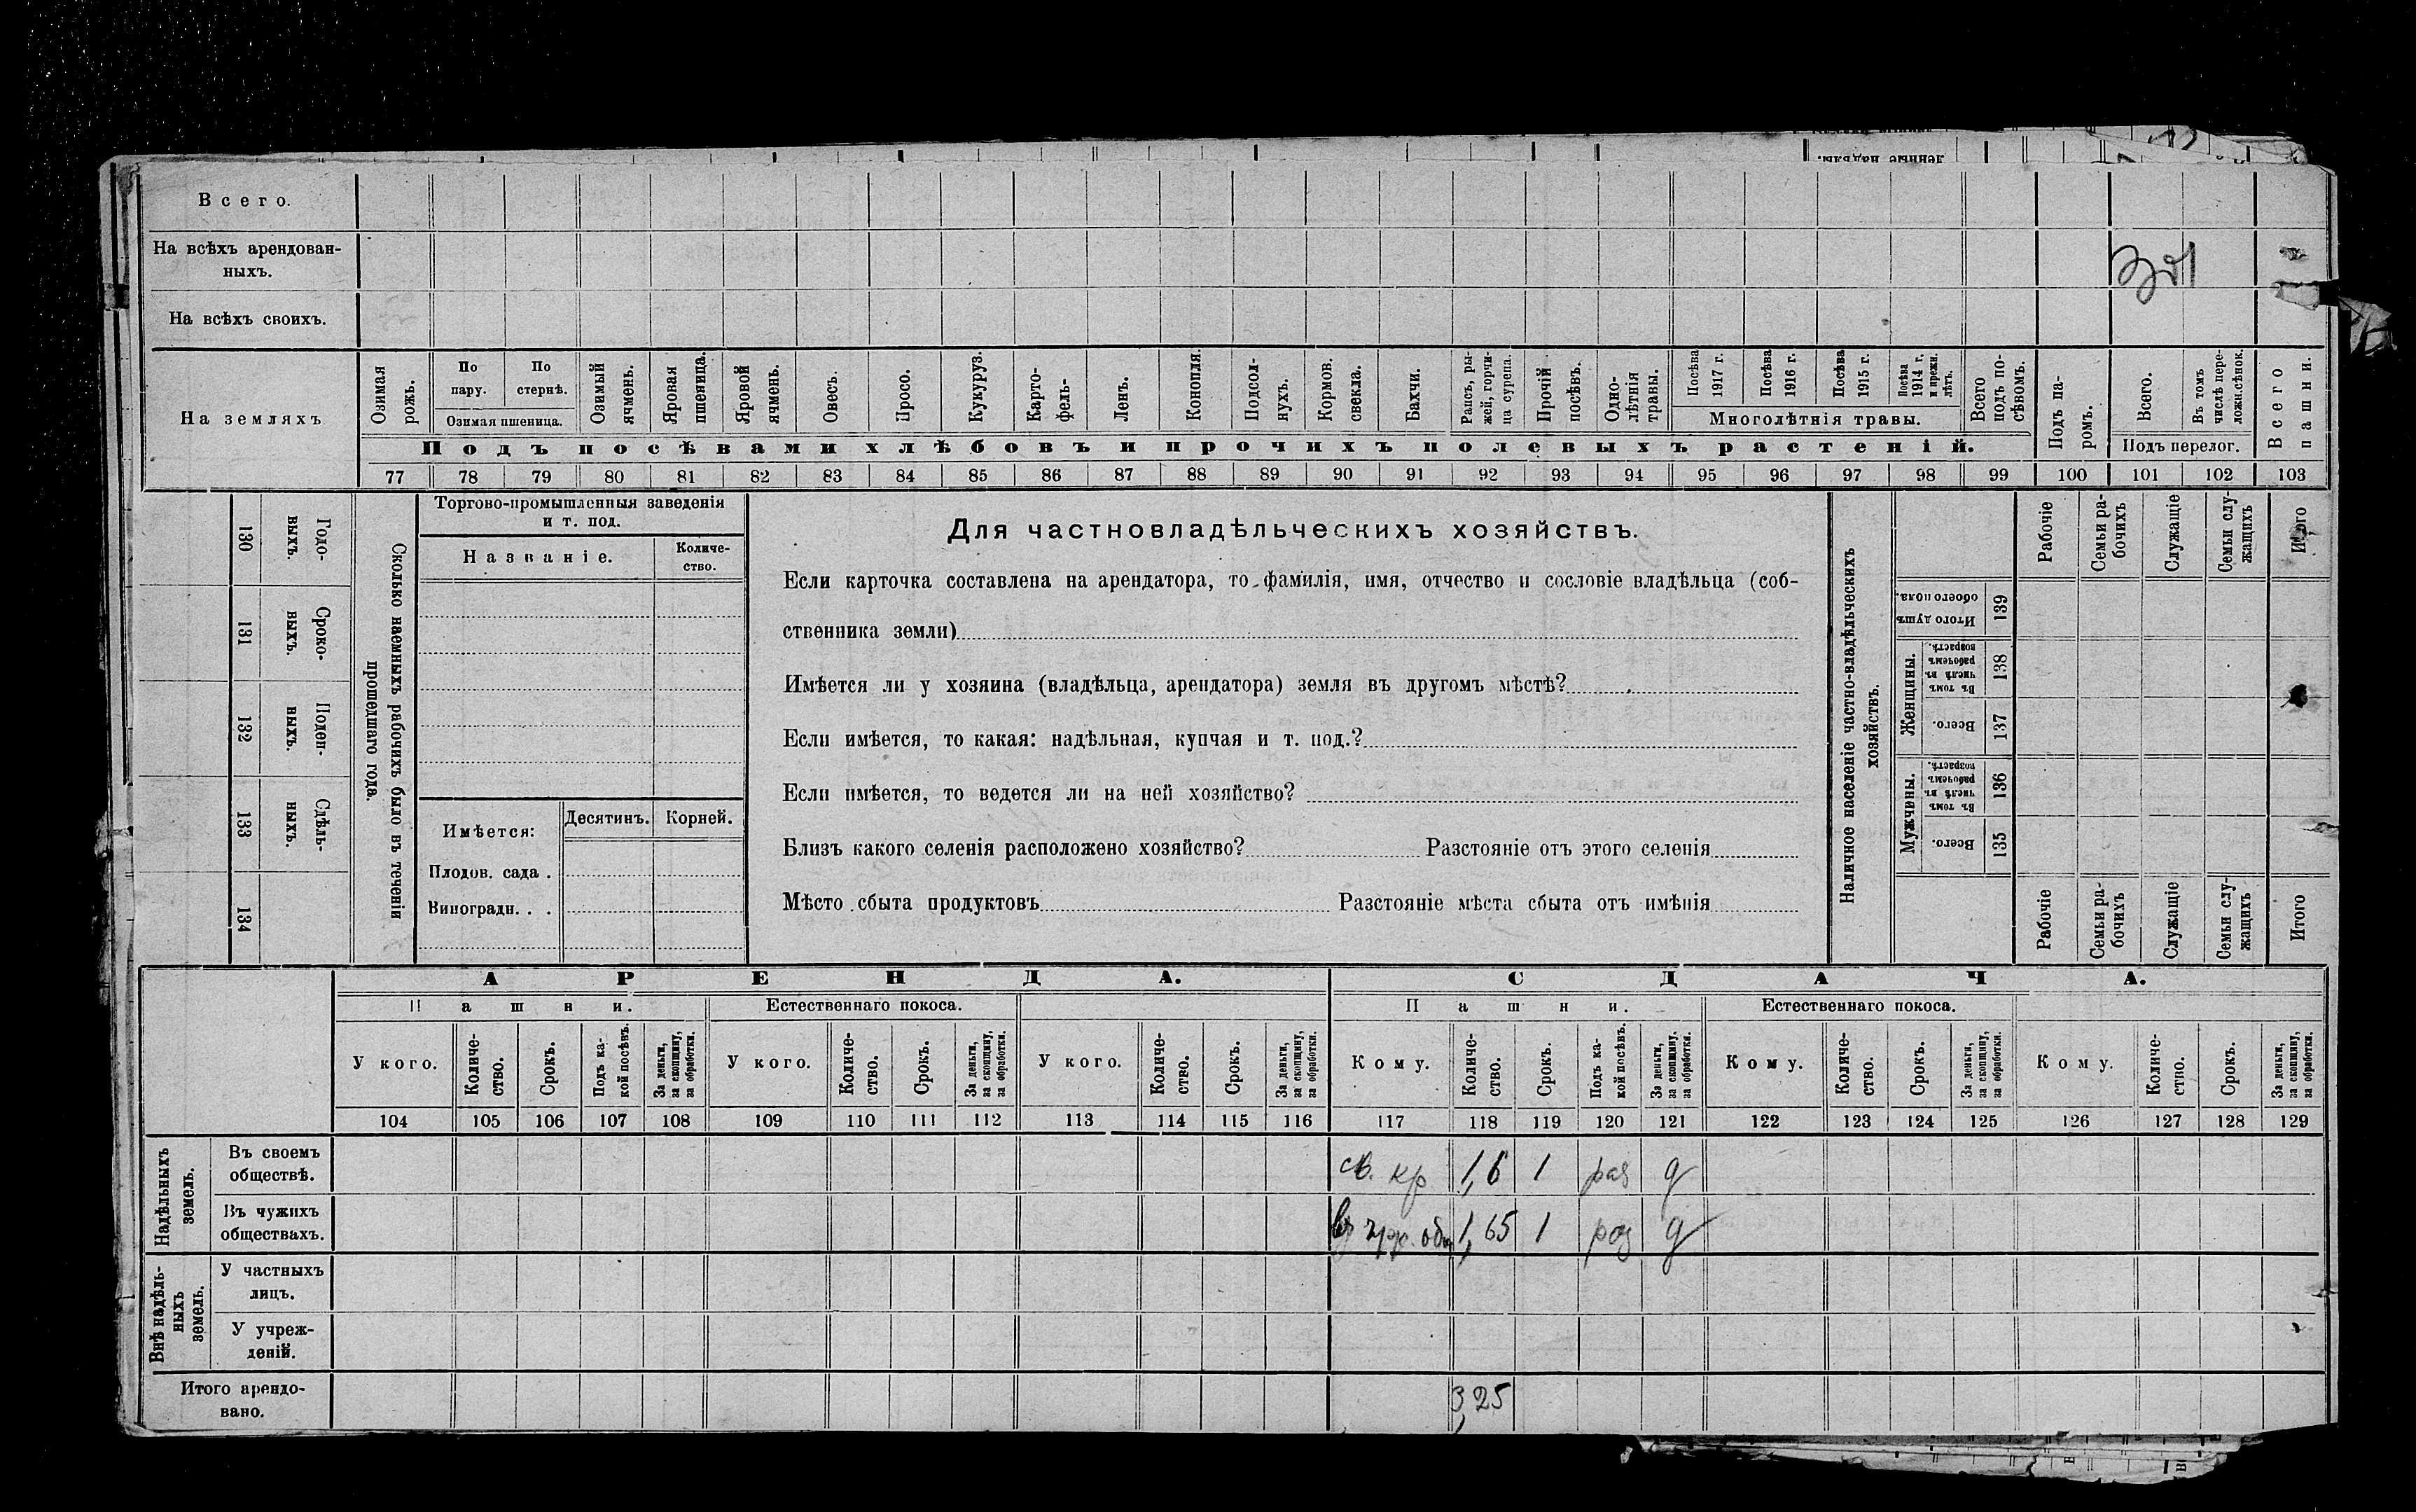 денные надѣлы.
Всего.
На всѣхъ арендован-
ныхъ.
На всѣхъ своихъ.
На земляхъ
Озимая
рожь.
По
пару.
По
стернѣ.
Озимая пшеница.
Озимый
ячмень.
Яровая
пшеница.
Яровой
ячмень.
Овесъ.
Просо.
Кукуруз.
Карто-
фель.
Ленъ.
Конопля.
Подсол-
нухъ.
Кормов.
свекла.
Бахчи.
Рапсъ, ры-
жей, горчи-
ца сурепа.
Прочій
посѣвъ.
Одно-
лѣтнія
травы.
Посѣва
1917 г.
Посѣва
1916 г.
Посѣва
1915 г.
Посѣва
1914 г.
и прежн.
лѣтъ.
Многолѣтнія травы.
Всего
подъ по-
сѣвомъ.
Подъ па-
ромъ.
Всего.
Въ томъ
числѣ пере-
ложн.сѣнок.
Подъ перелог.
Всего
пашни.
Подъ посѣвами хлѣбовъ и прочихъ полевыхъ растеній.
77 78 79 80 81 82 83 84 85 86 87 88 89 90 91 92 93 94 95 96 97 98 99 100 101 102 103
130
Годо-
выхъ.
131
Сроко-
выхъ.
132
Поден-
ныхъ.
133
Сдѣль-
ныхъ.
134
Сколько наемныхъ рабочихъ было въ теченіи
прошедшаго года.
Торгово-промышленныя заведенія
и т. под.
Названіе.
Количе-
ство.
Имѣется:
Десятинъ.
Корней.
Плодов. сада .
Виноградн. . .
Для частновладѣльческихъ хозяйствъ.
Если карточка составлена на арендатора, то фамилія, имя, отчество и сословіе владѣльца (соб-
ственника земли)
Имѣется ли у хозяина (владѣльца, арендатора) земля въ другомъ мѣстѣ?
Если имѣется, то какая: надѣльная, купчая и т. под.?
Если имѣется, то ведется ли на ней хозяйство?
Близъ какого селенія расположено хозяйство? Разстояніе отъ этого селенія
Мѣсто сбыта продуктовъ Разстояніе мѣста сбыта отъ имѣнія
Наличное населеніе частно-владѣльческихъ
хозяйствъ.
Рабочіе
Семьи ра-
бочихъ
Служащіе
Семьи слу-
жащихъ
Итого
Итого душъ
обоего пола.
139
Женщины.
Въ томъ
числѣ въ
рабочемъ
возрастѣ.
138
Всего.
137
Мужчины.
Въ томъ
числѣ въ
рабочемъ
возрастѣ.
136
Всего.
135
Рабочіе
Семьи ра-
бочихъ
Служащіе
Семьи слу-
жащихъ
Итого
АРЕНДА.
СДАЧА.
Пашни.
Естественнаго покоса.
Пашни.
Естественнаго покоса.
У кого.
Количе-
ство.
Срокъ.
Подъ ка-
кой посѣвъ.
За деньги,
за скопщину,
за обработки.
У кого.
Количе-
ство.
Срокъ.
За деньги,
за скопщину,
за обработки.
У кого.
Количе-
ство.
Срокъ.
За деньги,
за скопщину,
за обработки.
Кому.
Количе-
ство.
Срокъ.
Подъ ка-
кой посѣвъ.
За деньги,
за скопщину,
за обработки.
Кому.
Количе-
ство.
Срокъ.
За деньги,
за скопщину,
за обработки.
Кому.
Количе-
ство.
Срокъ.
За деньги,
за скопщину,
за обработки.
104 105 106 107 108 109 110 111 112 113 114 115 116 117 118 119 120 121 122 123 124 125 126 127 128 129
Надѣльныхъ
земель.
Въ своемъ
обществѣ.
св. кр 1,6 1 раз д
Въ чужихъ
обществахъ.
1,65 1 раз д
Внѣ надѣль-
ныхъ
земель.
У частныхъ
лицъ.
У учреж-
деній.
Итого арендо-
вано.
3,25